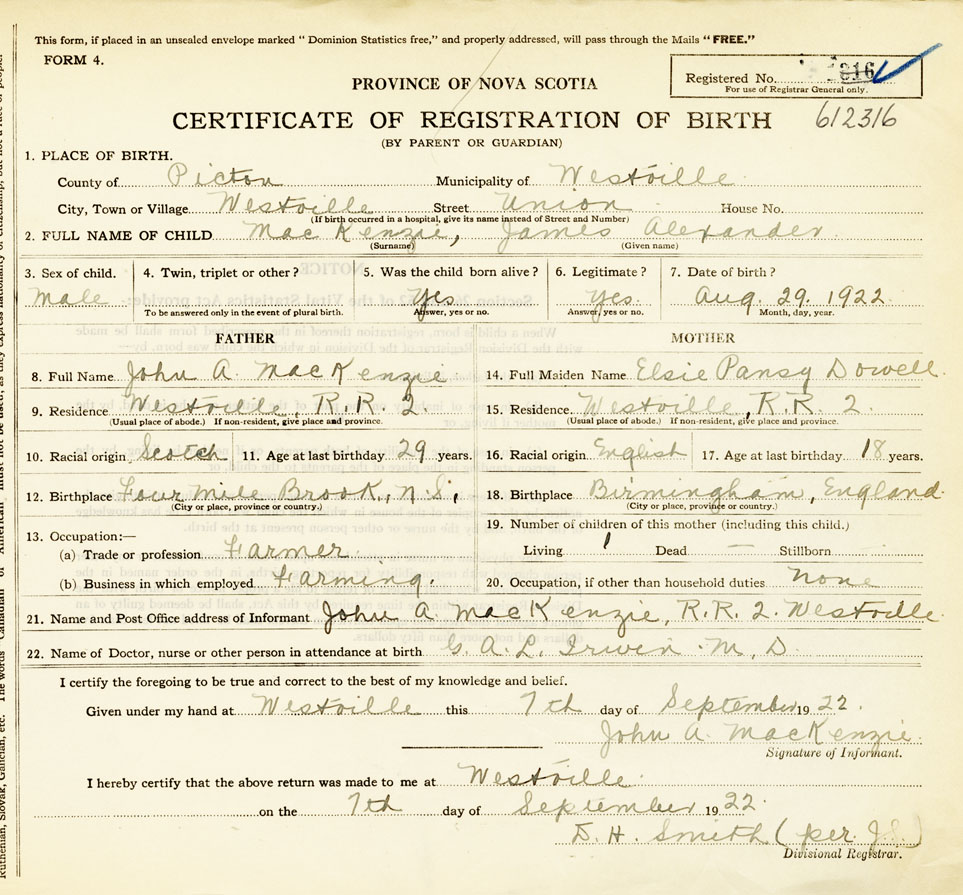 This form, if placed in an unsealed envelope marked “ Dominion Statistics free,” and properly addressed, will pass through the Mails “FREE.”
FORM 4.
Registered No. 316
For use of Registrar General only.
PROVINCE OF NOVA SCOTIA
CERTIFICATE OF REGISTRATION OF BIRTH 612316
(BY PARENT OR GUARDIAN)
1. PLACE OF BIRTH.
County of Pictou Municipality of Westville
City, Town or Village Westville Street Union House No.
(If birth occurred in a hospital, give its name instead of Street and Number)
2. FULL NAME OF CHILD MacKenzie, James Alexander
(Surname) (Given name)
3. Sex of child. 4. Twin, triplet or other? 5. Was the child born alive? 6. Legitimate? 7. Date of birth?
male Yes Yes. Aug. 29. 1922
To be answered only in the event of plural birth. Answer, yes or no. Answer, yes or no. Month, day, year.
FATHER MOTHER
8. Full Name John A. MacKenzie 14. Full Maiden Name Elsie Pansy Dowell
9. Residence Westville, R.R. 2. 15. Residence Westville, R.R. 2.
(Usual place of abode.) If non-resident, give place and province. (Usual place of abode.) If non-resident, give place and province.
10. Racial origin Scotch 11. Age at last birthday 29 years. 16. Racial origin English 17. Age at last birthday 18 years.
12. Birthplace Four Mile Brook, N.S., 18. Birthplace Birmingham, England.
(City or place, province or country.) (City or place, province or country.)
19. Number of children of this mother (including this child.)
13. Occupation:—
(a) Trade or profession Farmer Living 1 Dead — Stillborn
(b) Business in which employed Farming. 20. Occupation, if other than household duties none
21. Name and Post Office address of Informant John A. MacKenzie, R.R. 2. Westville
22. Name of Doctor, nurse or other person in attendance at birth G. A. L. Irwin M.D.
I certify the foregoing to be true and correct to the best of my knowledge and belief.
Given under my hand at Westville this 7th day of September 1922.
John A. MacKenzie.
Signature of Informant.
I hereby certify that the above return was made to me at Westville.
on the 7th day of September 1922.
D. H. Smith (per J.S.)
Divisional Registrar.